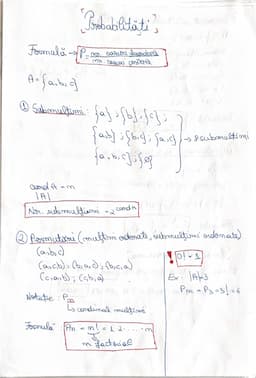 Probabilități
Formulă → P = nr. cazuri favorabile
nr. cazuri posibile
A = {a, b, c}
① Submulțimi: {a}; {b}; {c};
{a,b}; {b,c}; {a,c} → 8 submulțimi
{a, b, c}; {∅}
card A = n
|A|
Nr. submulțimi = 2^card A
② Permutări (mulțimi ordonate, submulțimi ordonate)
(a, b, c)
(a, c, b); (b, a, c); (b, c, a)
(c, a, b); (c, b, a)
! 0! = 1
Ex: |A| = 3
Pn = P3 = 3! = 6
Notație: Pn
↳ cardinal mulțimii
Formulă: Pn = n! = 1·2·...·n
n factorial